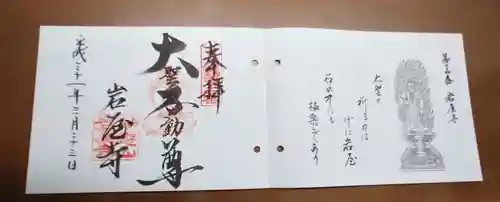 奉拝
大聖不動尊
岩屋寺
平成三十一年三月二十三日
大聖の
祈る力は
げに岩屋
石の中にも
極楽ぞある